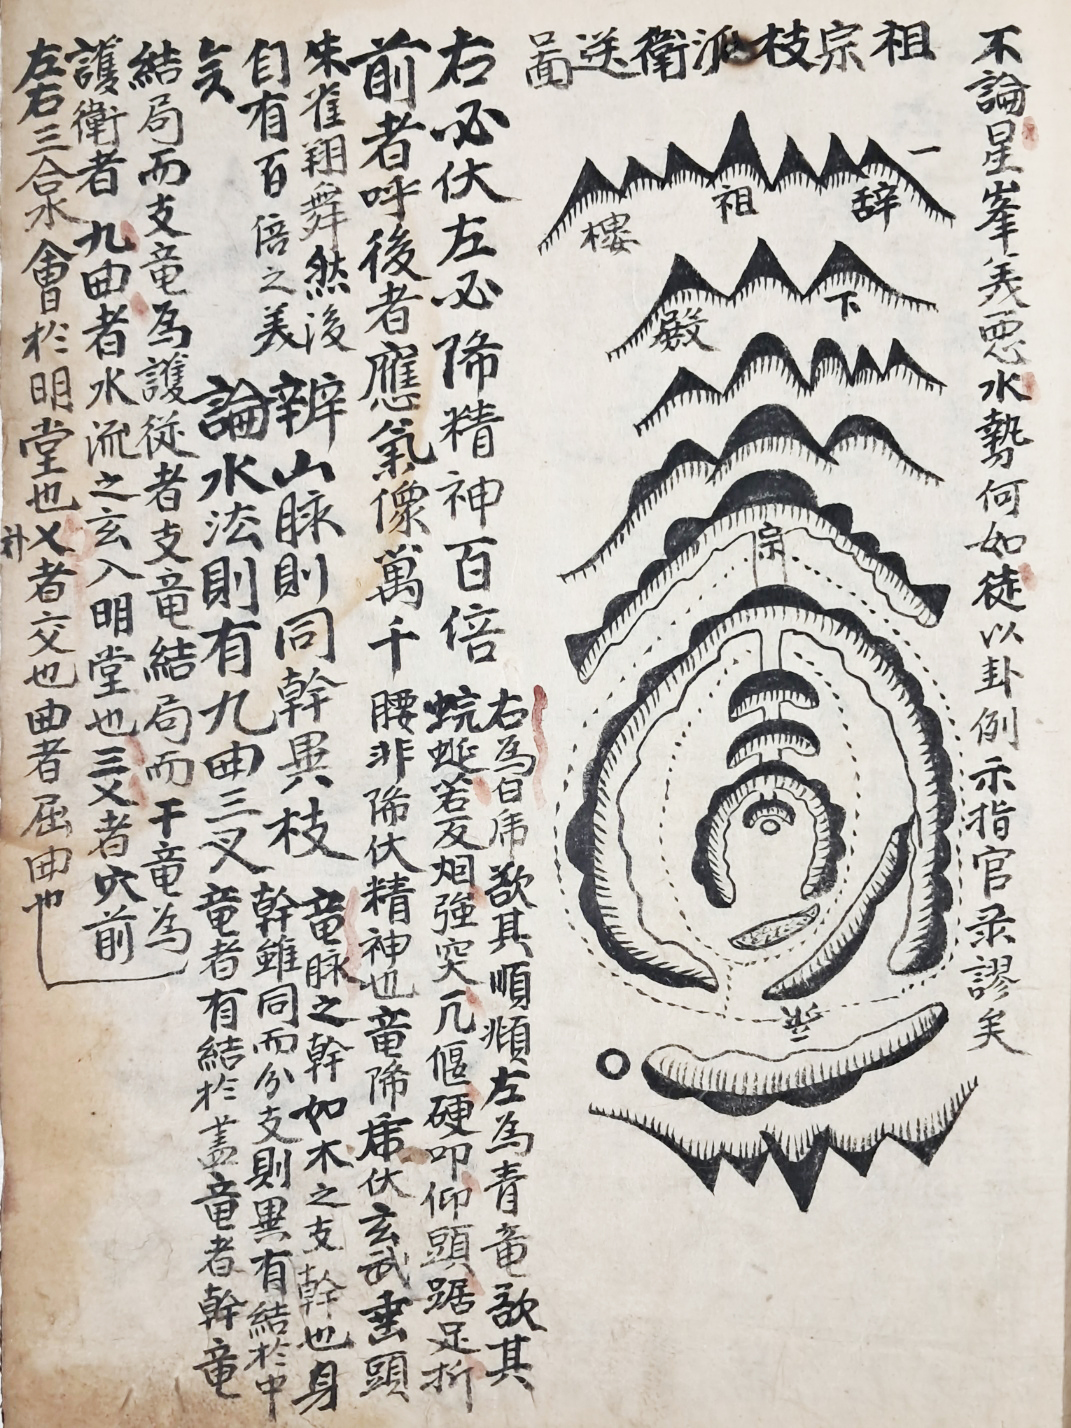 不論星峯羙悪水勢何如徒以卦例示指官录謬矣
祖宗枝派衛送啚
一
辞
祖
樓
下
殿
宗
右必伏左必降精神百倍
右爲白虎欲其順頫左爲青竜欲其
蜿蜒若反烟強突兀偃硬叩仰頭踞足折
前者呼後者應氣像萬千
腰非降伏精神也竜降虎伏玄武垂頭
朱雀翔舞然後
自有百倍之美
辨山脉則同幹異枝
竜脉之幹如木之支幹也身
幹雖同而分支則異有結於中
氣
論水法則有九曲三叉
竜者有結於盖竜者幹竜
結局而支竜爲護從者支竜結局而干竜爲
護衛者九曲者水流之玄入明堂也三叉者穴前
左右三合水會於明堂也叉者交也曲者屈曲也